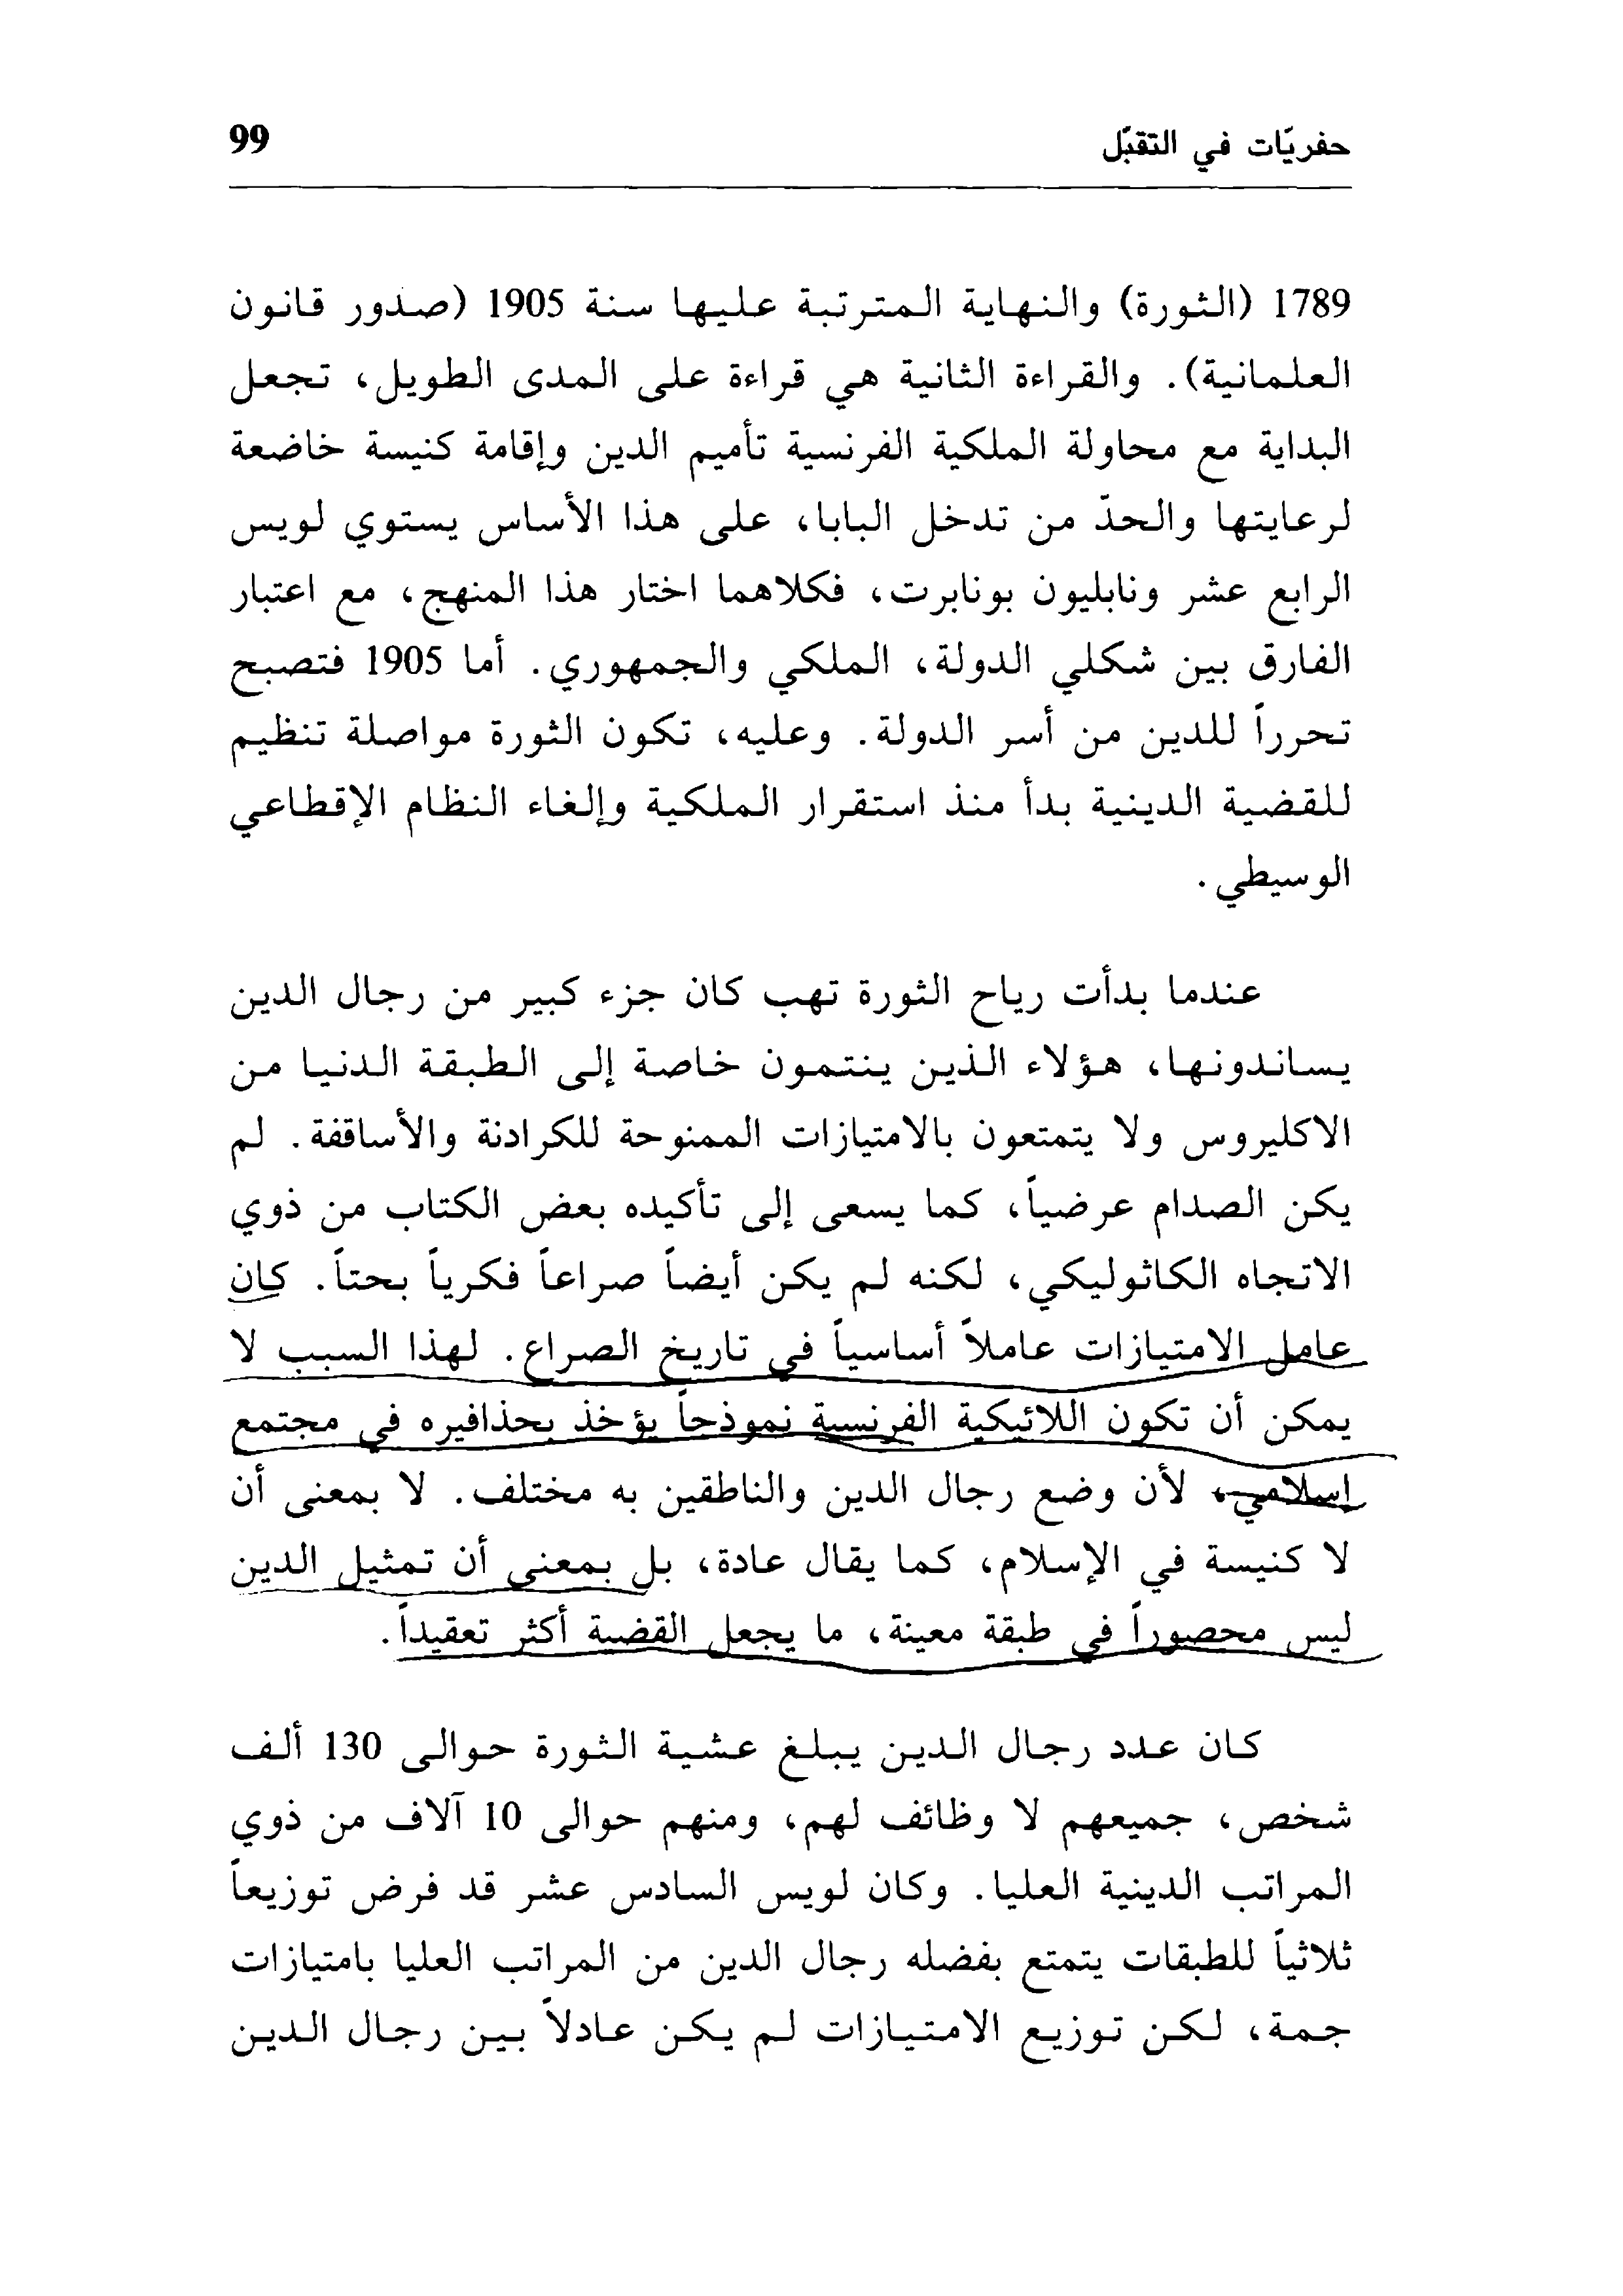 حفريّات في التقبّل 99
1789 (الثورة) والنهاية المترتبة عليها سنة 1905 (صدور قانون
العلمانية). والقراءة الثانية هي قراءة على المدى الطويل، تجعل
البداية مع محاولة الملكية الفرنسية تأميم الدين وإقامة كنيسة خاضعة
لرعايتها والحدّ من تدخل البابا، على هذا الأساس يستوي لويس
الرابع عشر ونابليون بونابرت، فكلاهما اختار هذا المنهج، مع اعتبار
الفارق بين شكلي الدولة، الملكي والجمهوري. أما 1905 فتصبح
تحرراً للدين من أسر الدولة. وعليه، تكون الثورة مواصلة تنظيم
للقضية الدينية بدأ منذ استقرار الملكية وإلغاء النظام الإقطاعي
الوسيطي.
عندما بدأت رياح الثورة تهب كان جزء كبير من رجال الدين
يساندونها، هؤلاء الذين ينتمون خاصة إلى الطبقة الدنيا من
الاكليروس ولا يتمتعون بالامتيازات الممنوحة للكرادنة والأساقفة. لم
يكن الصدام عرضياً، كما يسعى إلى تأكيده بعض الكتاب من ذوي
الاتجاه الكاثوليكي، لكنه لم يكن أيضاً صراعاً فكرياً بحتاً. كان
عامل الامتيازات عاملاً أساسياً في تاريخ الصراع. لهذا السبب لا
يمكن أن تكون اللائيكية الفرنسية نموذجاً يؤخذ بحذافيره في مجتمع
إسلامي، لأن وضع رجال الدين والناطقين به مختلف. لا بمعنى أن
لا كنيسة في الإسلام، كما يقال عادة، بل بمعنى أن تمثيل الدين
ليس محصوراً في طبقة معينة، ما يجعل القضية أكثر تعقيداً.
كان عدد رجال الدين يبلغ عشية الثورة حوالى 130 ألف
شخص، جميعهم لا وظائف لهم، ومنهم حوالى 10 آلاف من ذوي
المراتب الدينية العليا. وكان لويس السادس عشر قد فرض توزيعاً
ثلاثياً للطبقات يتمتع بفضله رجال الدين من المراتب العليا بامتيازات
جمة، لكن توزيع الامتيازات لم يكن عادلاً بين رجال الدين